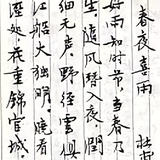 春夜喜雨 杜
好雨知时节,当春乃
生。随风潜入夜,润
细无声。野径云俱
江船火独明。晓看
湿处,花重锦官城。